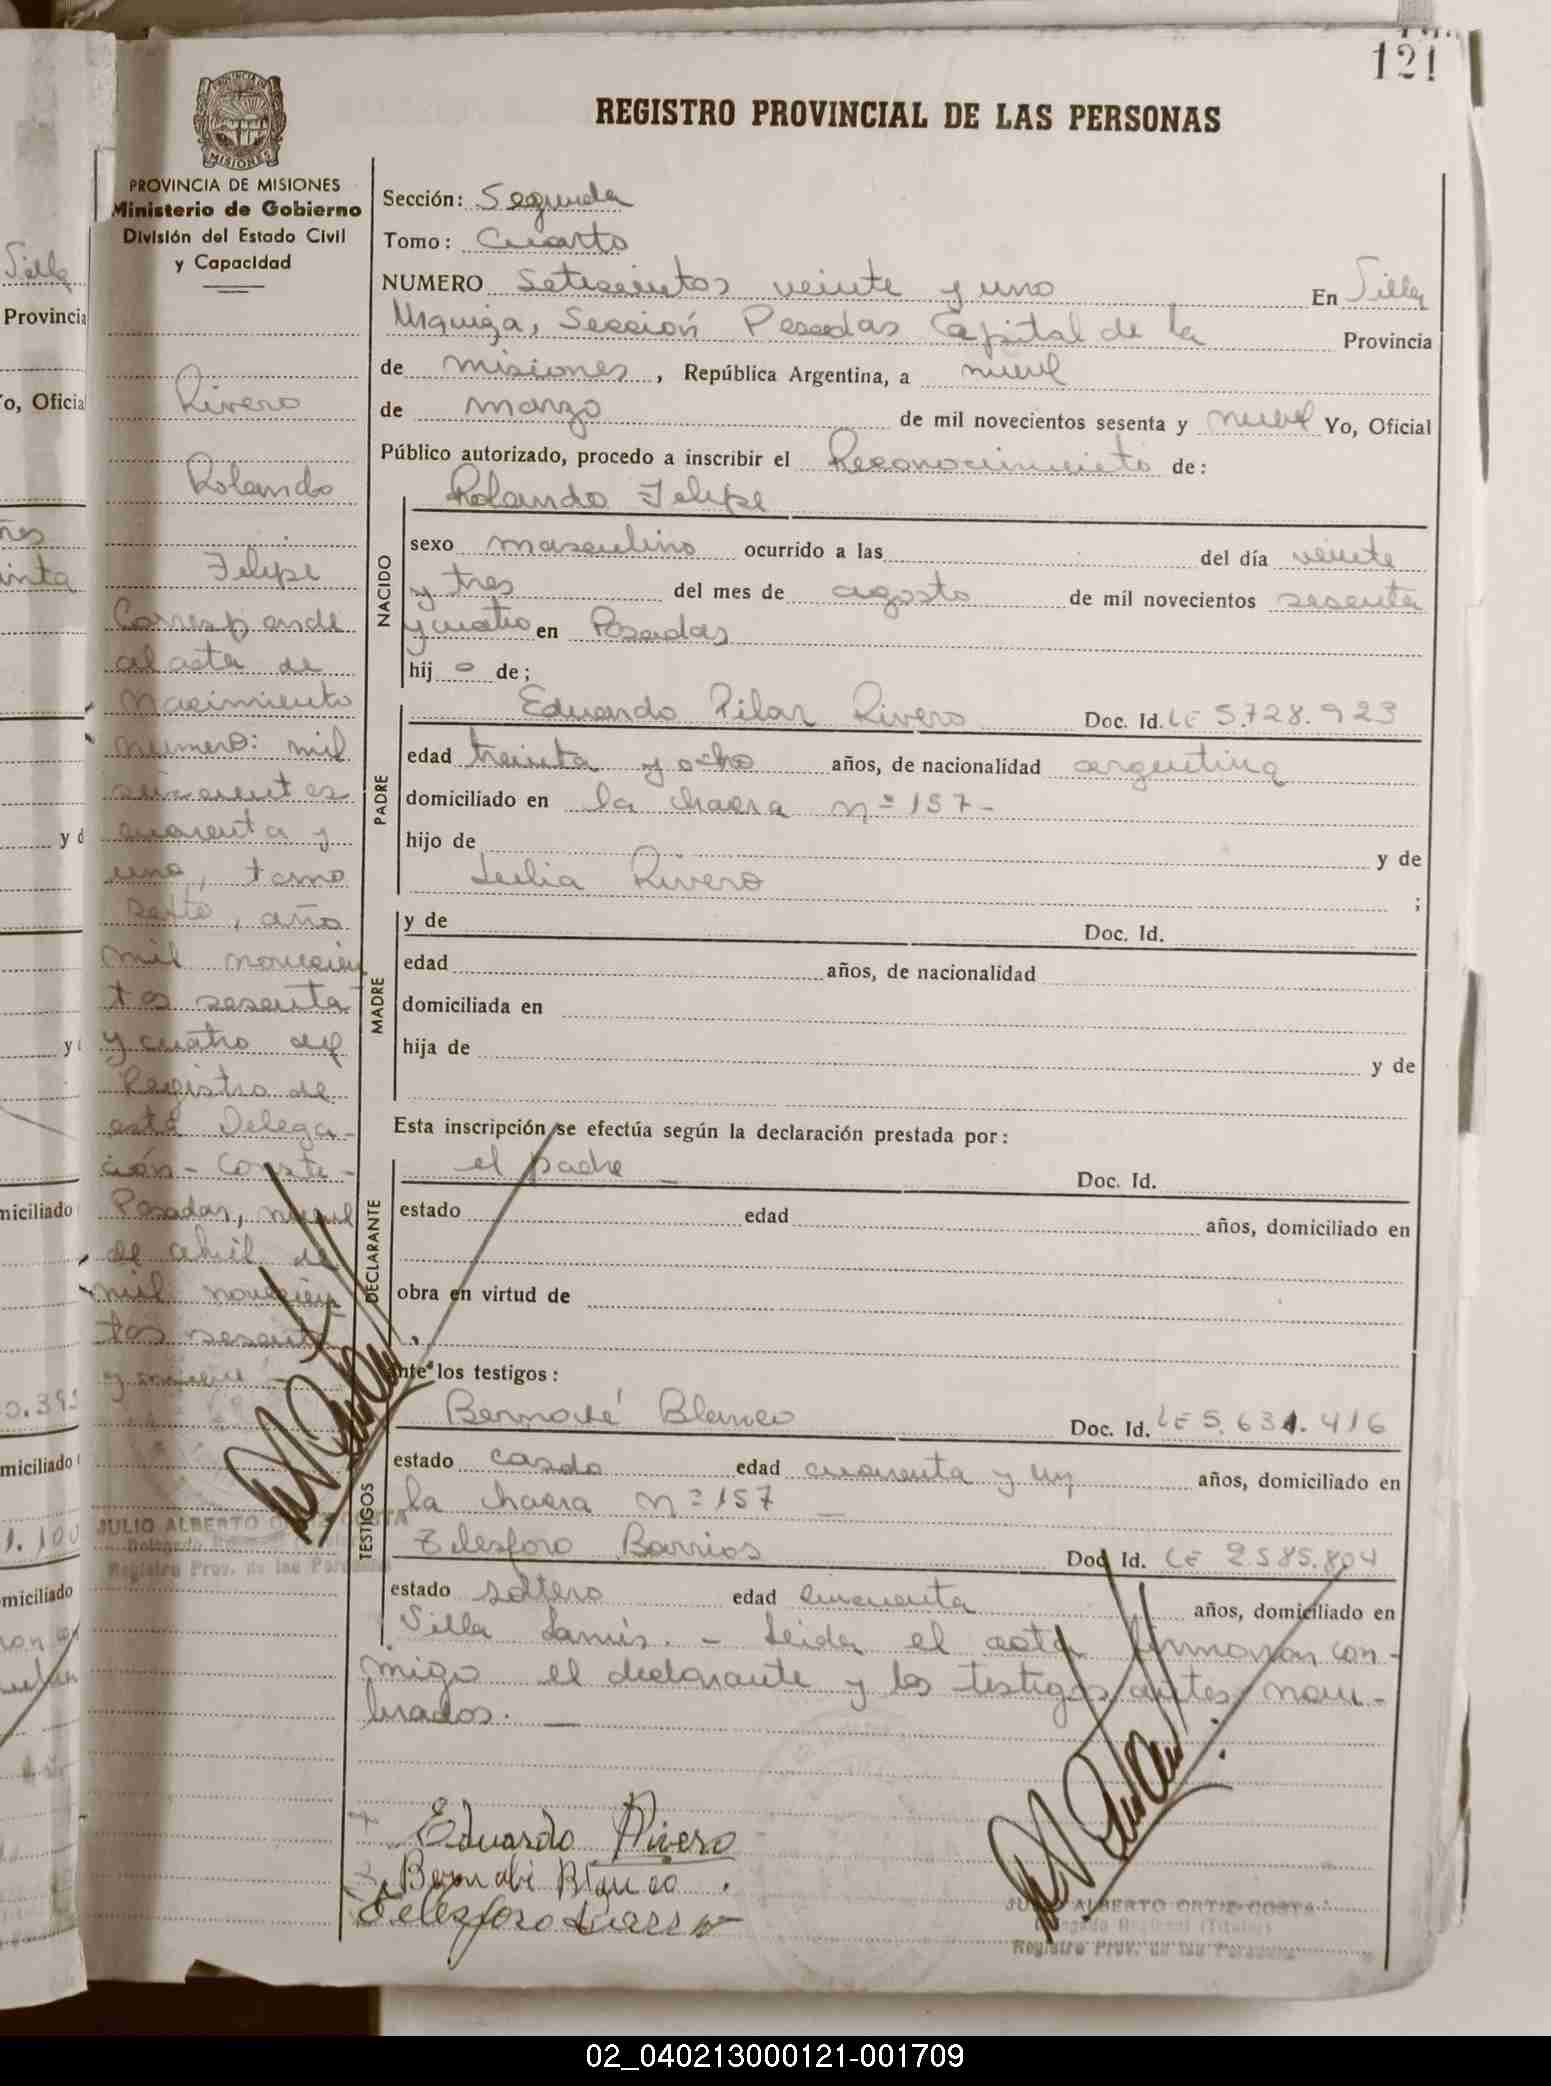 121
REGISTRO PROVINCIAL DE LAS PERSONAS
PROVINCIA DE MISIONES
Ministerio de Gobierno
División del Estado Civil
y Capacidad
Rivero
Rolando
Felipe
Corresponde
al acta de
nacimiento
número: mil
seiscientos
cuarenta y
uno, tomo
sexto, año
mil novecien
tos sesenta
y cuatro del
Registro de
esta Delega-
ción - Conste -
Posadas, nueve
de abril de
mil novecien
tos sesenta
y nueve -
JULIO ALBERTO ORTIZ COSTA
Registro Prov. de las Personas
Sección: Segunda
Tomo: Cuarto
NUMERO Setecientos veinte y uno En Villa
Urquiza, Sección Posadas Capital de la Provincia
de misiones, República Argentina, a nueve
de marzo de mil novecientos sesenta y nueve Yo, Oficial
Público autorizado, procedo a inscribir el Reconocimiento de:
Rolando Felipe
NACIDO
sexo masculino ocurrido a las del día veinte
y tres del mes de agosto de mil novecientos sesenta
y cuatro en Posadas
hij o de;
PADRE
Eduardo Pilar Rivero Doc. Id. LE 5.728.923
edad treinta y ocho años, de nacionalidad argentina
domiciliado en la chacra nº 157-
hijo de y de
Julia Rivero ;
MADRE
y de Doc. Id.
edad años, de nacionalidad
domiciliada en
hija de y de
Esta inscripción se efectúa según la declaración prestada por:
DECLARANTE
el padre Doc. Id.
estado edad años, domiciliado en
obra en virtud de
Ante los testigos:
TESTIGOS
Bernabé Blanco Doc. Id. LE 5.631.416
estado casado edad cuarenta y un años, domiciliado en
la chacra nº 157
Telesforo Barrios Doc. Id. LE 2.585.804
estado soltero edad cincuenta años, domiciliado en
Villa Lanús. - Leida el acta firmaron con-
migo el declarante y los testigos antes nom-
brados. -
Eduardo Rivero
Bernabé Blanco
Telesforo
JULIO ALBERTO ORTIZ COSTA
Delegado Regional (Titular)
Registro Prov. de las Personas
02_040213000121-001709